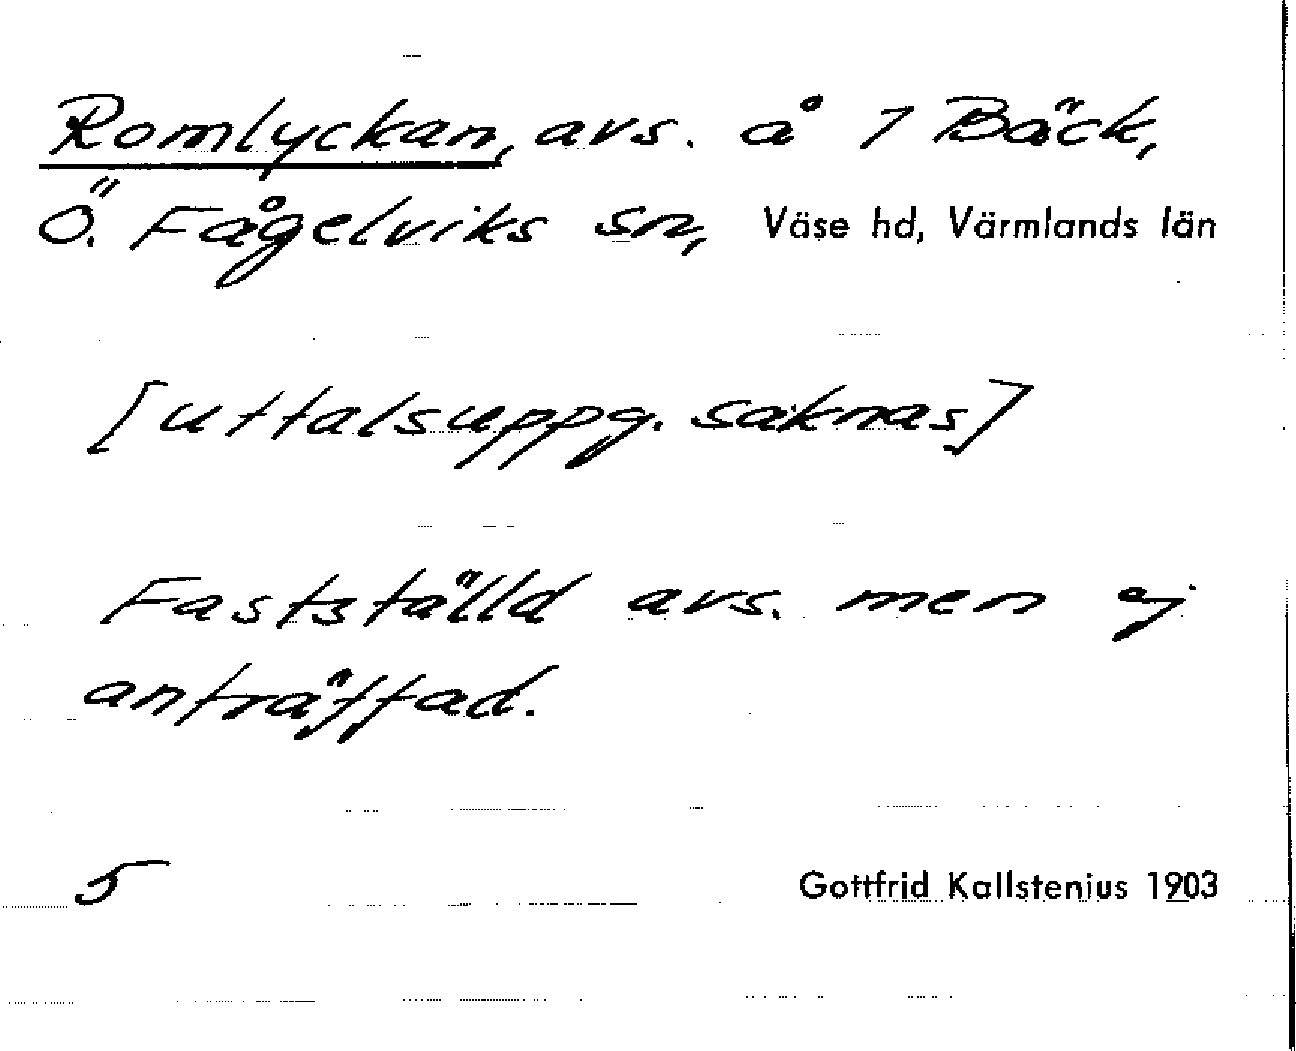 Romlyckan, avs. å 1 Bäck,
Ö. Fågelviks sn, Väse hd, Värmlands län
[uttalsuppg. saknas]
Fastställd avs. men ej
anträffad.
5 Gottfrid Kallstenius 1903